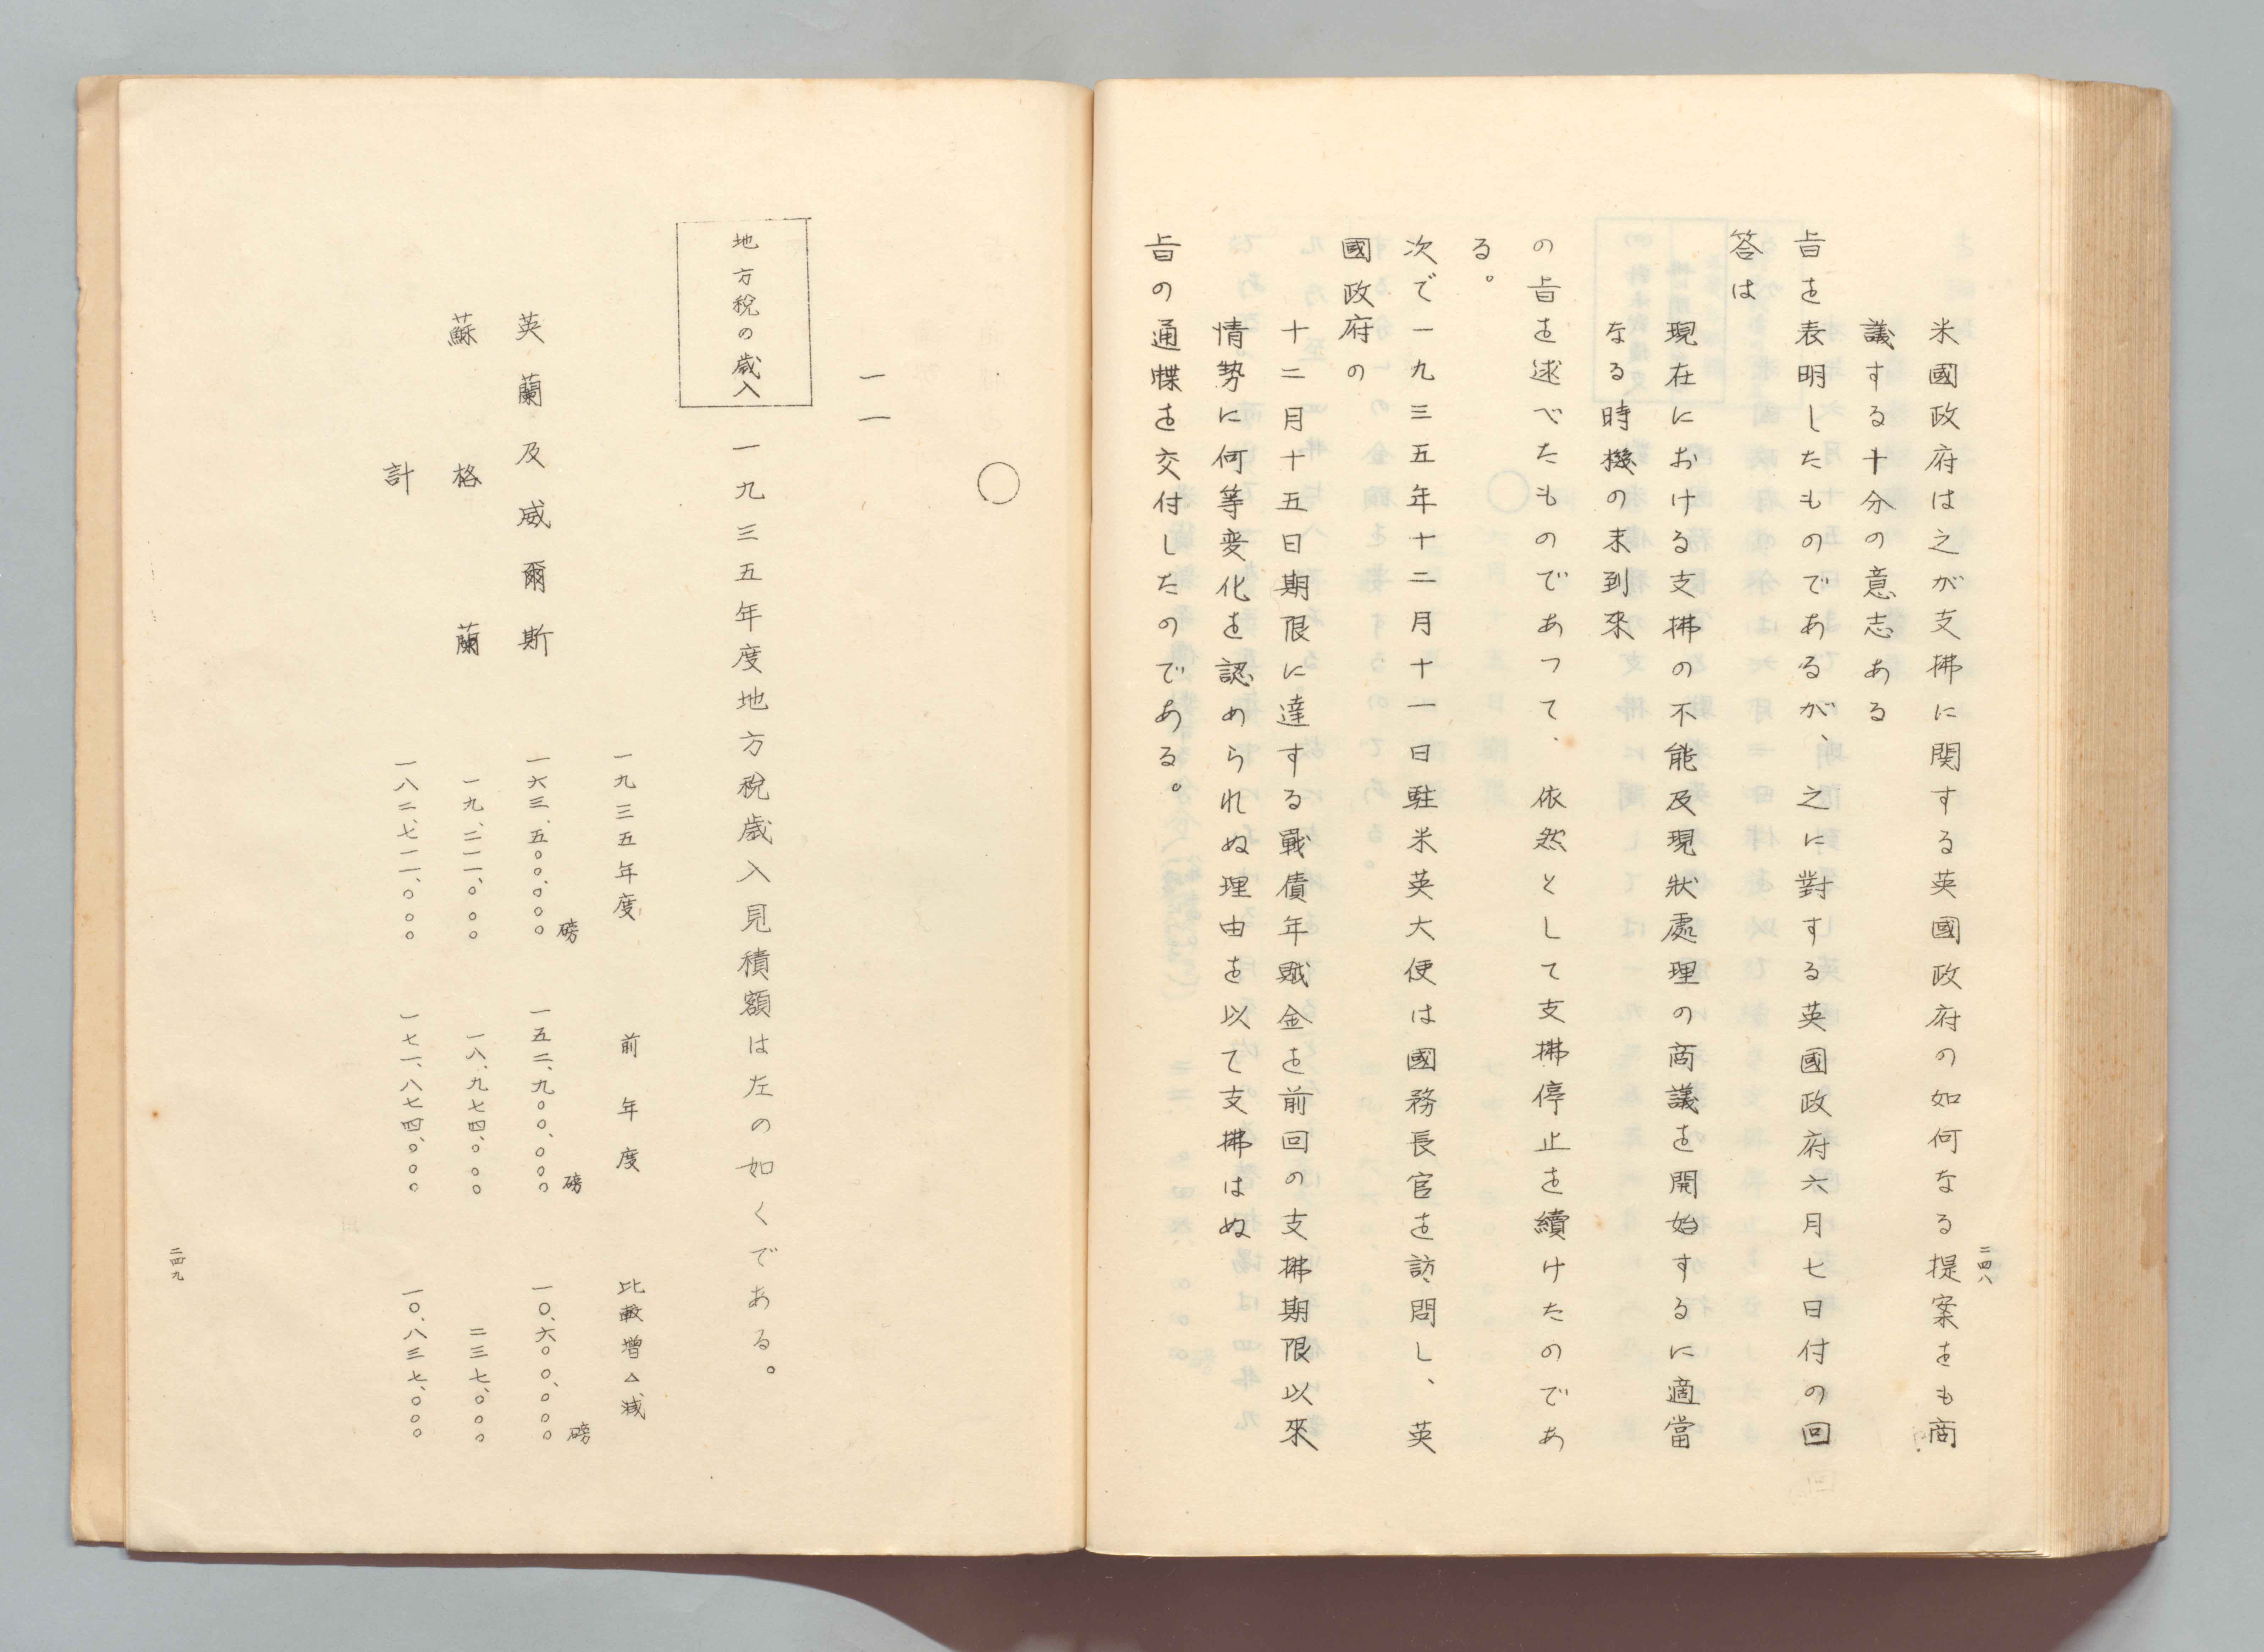 二四八
米國政府は之が支拂に関する英國政府の如何なる提案をも商
議する十分の意志ある
旨を表明したものであるが、之に對する英國政府六月七日付の回
答は
現在における支拂の不能及現狀處理の商議を開始するに適當
なる時機の未到來
の旨を述べたものであつて、依然として支拂停止を續けたのであ
る。
次で一九三五年十二月十一日駐米英大使は國務長官を訪問し、英
國政府の
十二月十五日期限に達する戰債年賦金を前回の支拂期限以來
情勢に何等変化を認められぬ理由を以て支拂はぬ
旨の通牒を交付したのである。
〇
一一
地方税の歳入
一九三五年度地方税歳入見積額は左の如くである。
一九三五年度 前年度 比較増△減
磅 磅 磅
英蘭及威爾斯 一六三、五〇〇、〇〇〇 一五二、九〇〇、〇〇〇 一〇、六〇〇、〇〇〇
蘇格蘭 一九、二一一、〇〇〇 一八、九七四、〇〇〇 二三七、〇〇〇
計 一八二、七一一、〇〇〇 一七一、八七四、〇〇〇 一〇、八三七、〇〇〇
二四九